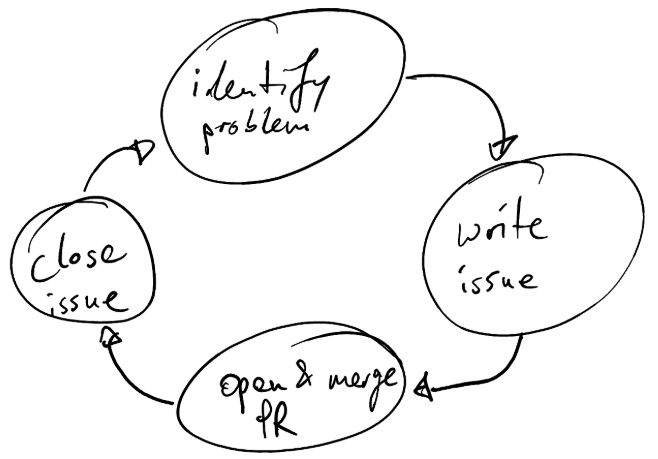 identify
problem
write
issue
open & merge
PR
close
issue